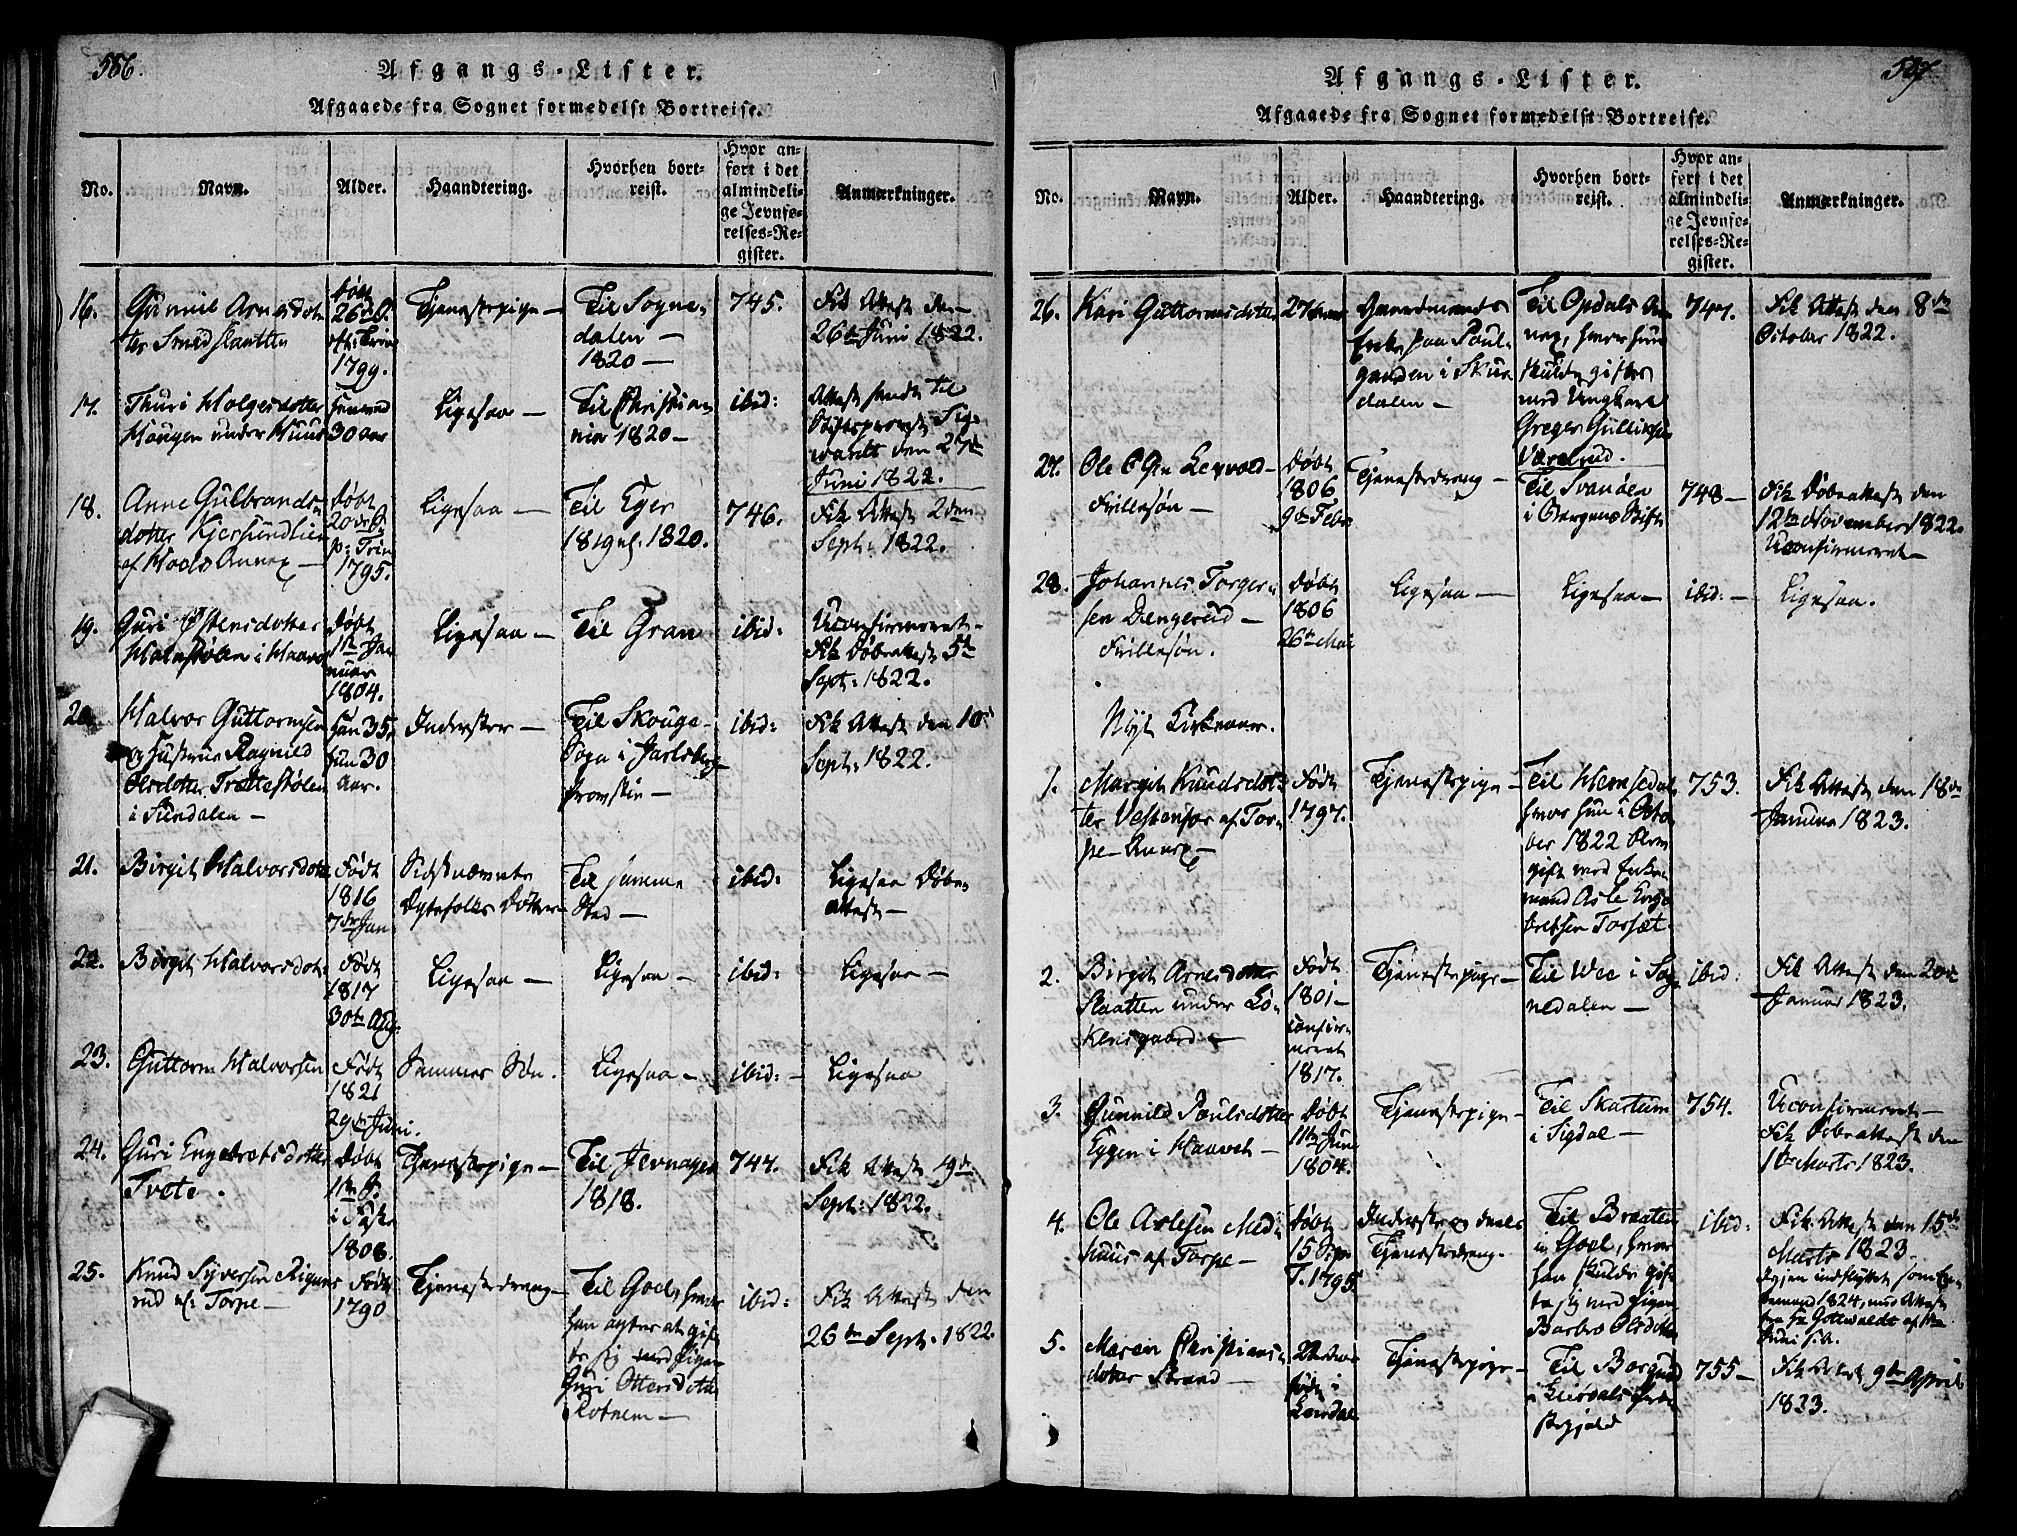 586.
Afgangs-Lister.
Afgaaede fra Sognet formedelst Bortreise.
No.
Navn.
Alder.
Haandtering.
Hvorhen bort-
reist.
Hvor an-
ført i det
almindeli-
ge Jevnfø-
relses-Re-
gister.
Anmærkninger.
16.
Gunnil Arnesdot
ter Smedslaatten
døbt
26
1799.
Tjenestepige —
Til Sogne-
dalen —
1820 —
745.
Fik Attest den
26de Juni 1822.
17.
Thuri Holgersdotter
Haugen under Huus
30 aar
Ligesaa —
Til Christian
nia 1820 —
ibid:
Attest sendt til
Stiftsprovst
den 27de
Juni 1822.
18.
Anne Gulbrands
dotter
af Hools Annex —
Døbt
p: Trin
1795.
Ligesaa —
Til Eger
1820.
746.
Fik Attest 2den
Sept: 1822.
19.
Guri Østensdotter
Døbt
1te Ja
nuar
1804.
Ligesaa —
Til Gran
ibid:
Uconfirmeret —
Fik Døbeattest 5te
Sept: 1822.
20.
Halvor Guttormsen
og Hustrue Ragnild
Olsdotter Trøttestølen
i Sundalen —
han 35,
hun 30
Aar.
Inderster —
Til Skouge
Sogn i Jarlsberg
Provstie —
ibid:
Fik Attest den 10de
Sept: 1822.
21.
Birgit Halvorsdotter
Født
1816
7de Jan
Sidstnævnte
Ægtefolks Dotter —
Til samme
Sted —
ibid:
Ligesaa Døbe-
attest —
22.
Birgit Halvorsdot
Født
1817
30te Aug:
Ligesaa —
Ligesaa —
ibid:
Ligesaa —
23.
Guttorm Halvorsen
Født
1821
29de Juni.
Sammes Søn.
Ligesaa —
ibid: —
Ligesaa
24.
Guri Engebretsdotter
Tvete.
Døbt
11te S.
1808.
Tjenestepige —
Til Jevnager
1818.
747.
Fik Attest 19de
Sept: 1822.
25.
Knud Syversen
rud af Torpe —
Født
1790
Tjenestedreng —
Til Gol, hvor
han agter at gift
te sig med Pigen
Guri Ottersdotter
Rotnem —
ibid:
Fik Attest den
26de Sept: 1822.
587.
Afgangs-Lister.
Afgaaede fra Sognet formedelst Bortreise.
No.
Navn.
Alder.
Haandtering.
Hvorhen bort-
reist.
Hvor an-
ført i det
almindeli-
ge Jevnfø-
relses-Re-
gister.
Anmærkninger.
26.
Kari Guttormsdotter
27 Aar
Gaardmands
Enke paa Poul-
gaarden i Skur
dalen —
Til Opdals An
nex, hvor hun
skulde giftes
med Ungkarl
Greger Gulliksen
Værelrud.
747.
Fik Attest den 8de
October 1822.
27.
Ole Olsen
Frillesøn —
Døbt
1806
9de Febr
Tjenestedreng —
Til Svanøen
i Bergens Stift
748 —
Fik Døbeattest den
12te November 1822.
Uconfirmeret —
28.
Johannes Torger
sen Dengerud —
Frillesøn.
Døbt
1806
26de Mai
Ligesaa —
Ligesaa —
ibid: —
Ligesaa.
Nyt Kirkeaar.
1.
Margit Knudsdot
ter Vestenfor af Tor-
pe Annex —
Født
1797.
Tjenestepige —
Til Hemsedal
hvor hun i Octo
ber 1822 blev
gift med Enke
mand Asle Enge
bretsen Torset.
753.
Fik Attest den 18de
Januar 1823.
2.
Birgit Arnesdotter
Slaatten under Lø-
kensgaard —
Født
1801 —
confir-
meret
1817.
Tjenestepige —
Til Wee i Sog
nedalen —
ibid:
Fik Attest den 20de
Januar 1823.
3.
Gunnild Paulsdotter
Eggen i Haavet —
Døbt
11te Juni
1804.
Tjenestepige —
Til Skartum
i Sigdal —
754.
Uconfirmeret —
Fik Døbeattest den
1te Marts 1823.
4.
Ole Aslesen Med
huus af Torpe —
Døbt
15 S
T. 1795
Inderste og deels
Tjenestedreng.
Til Braaten
i Goel, hvor
han skulde gift
te sig med Pigen
Barbro Olsdotter
ibid:
Fik Attest den 15de
Marts 1823.
Igjen indflyttet som En-
kemand 1824,
5.
Maren Christians-
dotter Strand —
22
født i
Leirdal
Tjenestepige —
Til Borgund
i Leirdals Præste
gjeld
755 —
Fik Attest 9de April
1823.